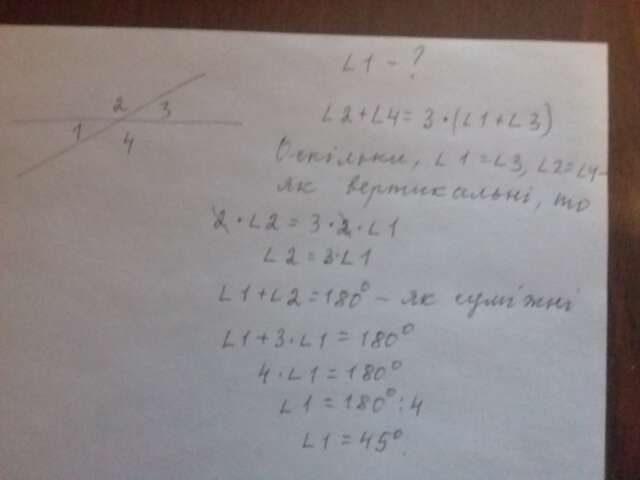 ∠1 - ?
2
3
1
4
∠2+∠4=3•(∠1+∠3)
Оскільки, ∠1=∠3, ∠2=∠4-
як вертикальні, то
2•∠2=3•2•∠1
∠2=3•∠1
∠1+∠2=180° - як суміжні
∠1+3•∠1=180°
4•∠1=180°
∠1=180°:4
∠1=45°.